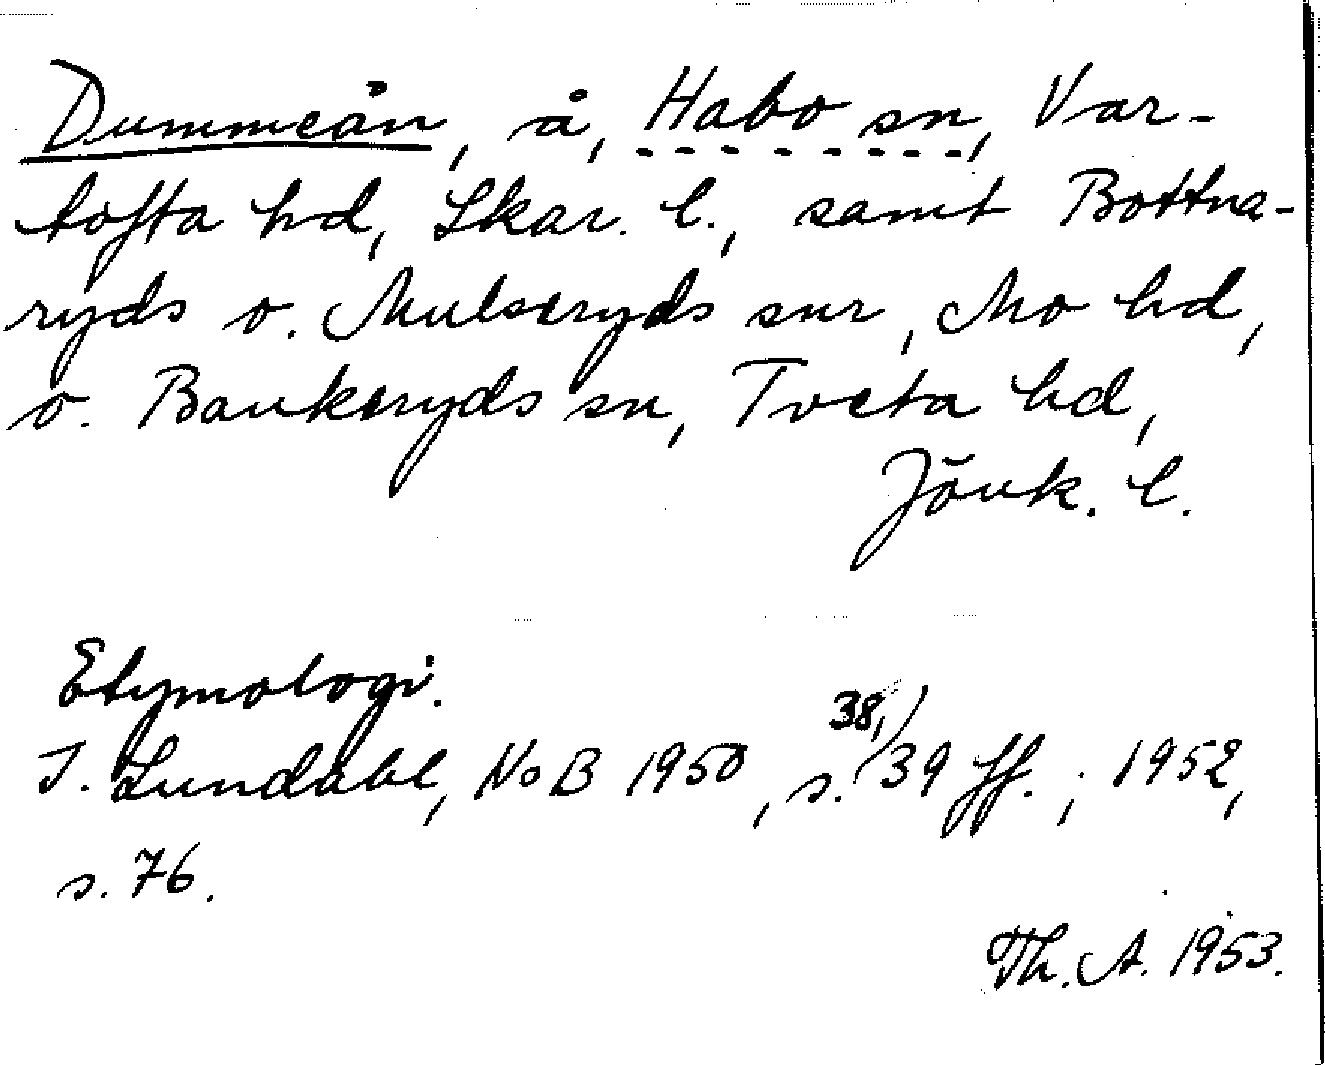 Dummeån, å, Habo sn, Var-
tofta hd, Skar. l., samt Bottna-
ryds o. Mulseryds snr, Mo hd,
o. Bankeryds sn, Tveta hd,
Jönk. l.
Etymologi.
I. Lundahl, NoB 1950, s. 38, 39 ff.; 1952,
s. 76.
Th. A. 1953.